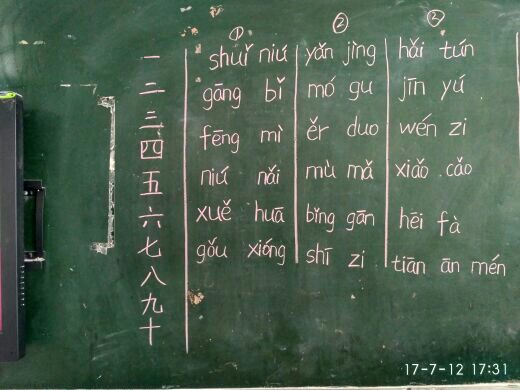 ① ② ③
一 shuǐ niú yǎn jìng hǎi tún
二 gāng bǐ mó gu jīn yú
三 fēng mì ěr duo wén zi
四 niú nǎi mù mǎ xiǎo cǎo
五 xuě huā bǐng gān hēi fà
六 gǒu xióng shī zi tiān ān mén
七
八
九
十
17-7-12 17:31